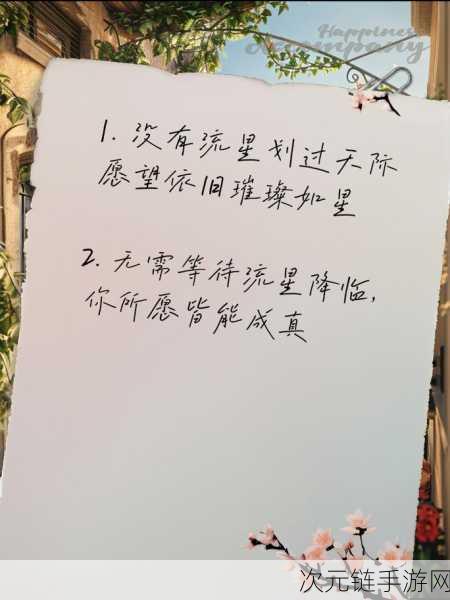 Happiness
Accompany
1. 没有流星划过天际
愿望依旧璀璨如星
2. 无需等待流星降临,
你所愿皆能成真
次元链手游网